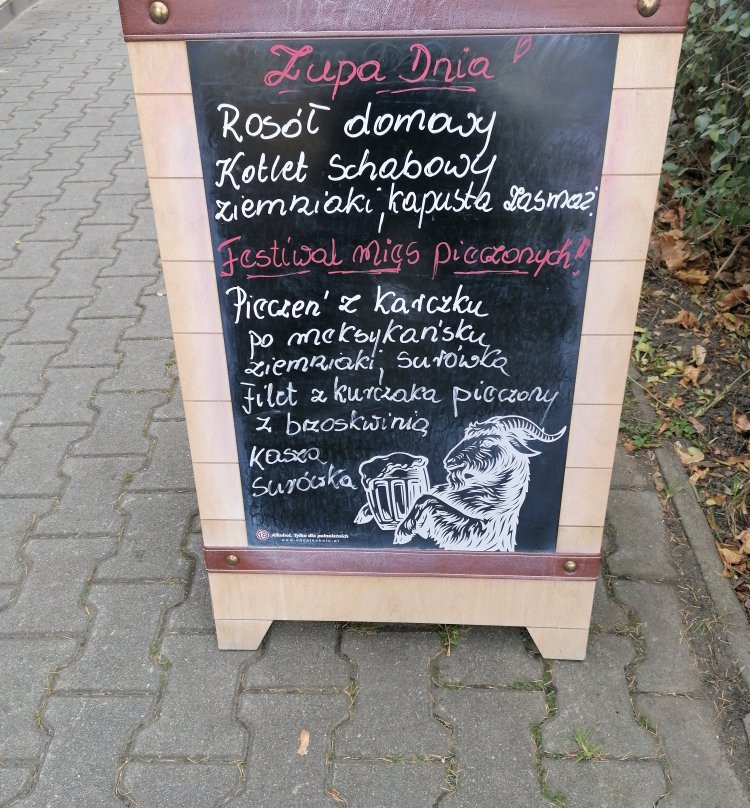 Zupa Dnia
Rosół domowy
Kotlet schabowy
ziemniaki, kapusta zasmaż.
Festiwal mięs pieczonych!
Pieczeń z karczku
po meksykańsku
ziemniaki, surówka
Filet z kurczaka pieczony
z brzoskwinią
kasza
surówka
18 Alkohol. Tylko dla pełnoletnich